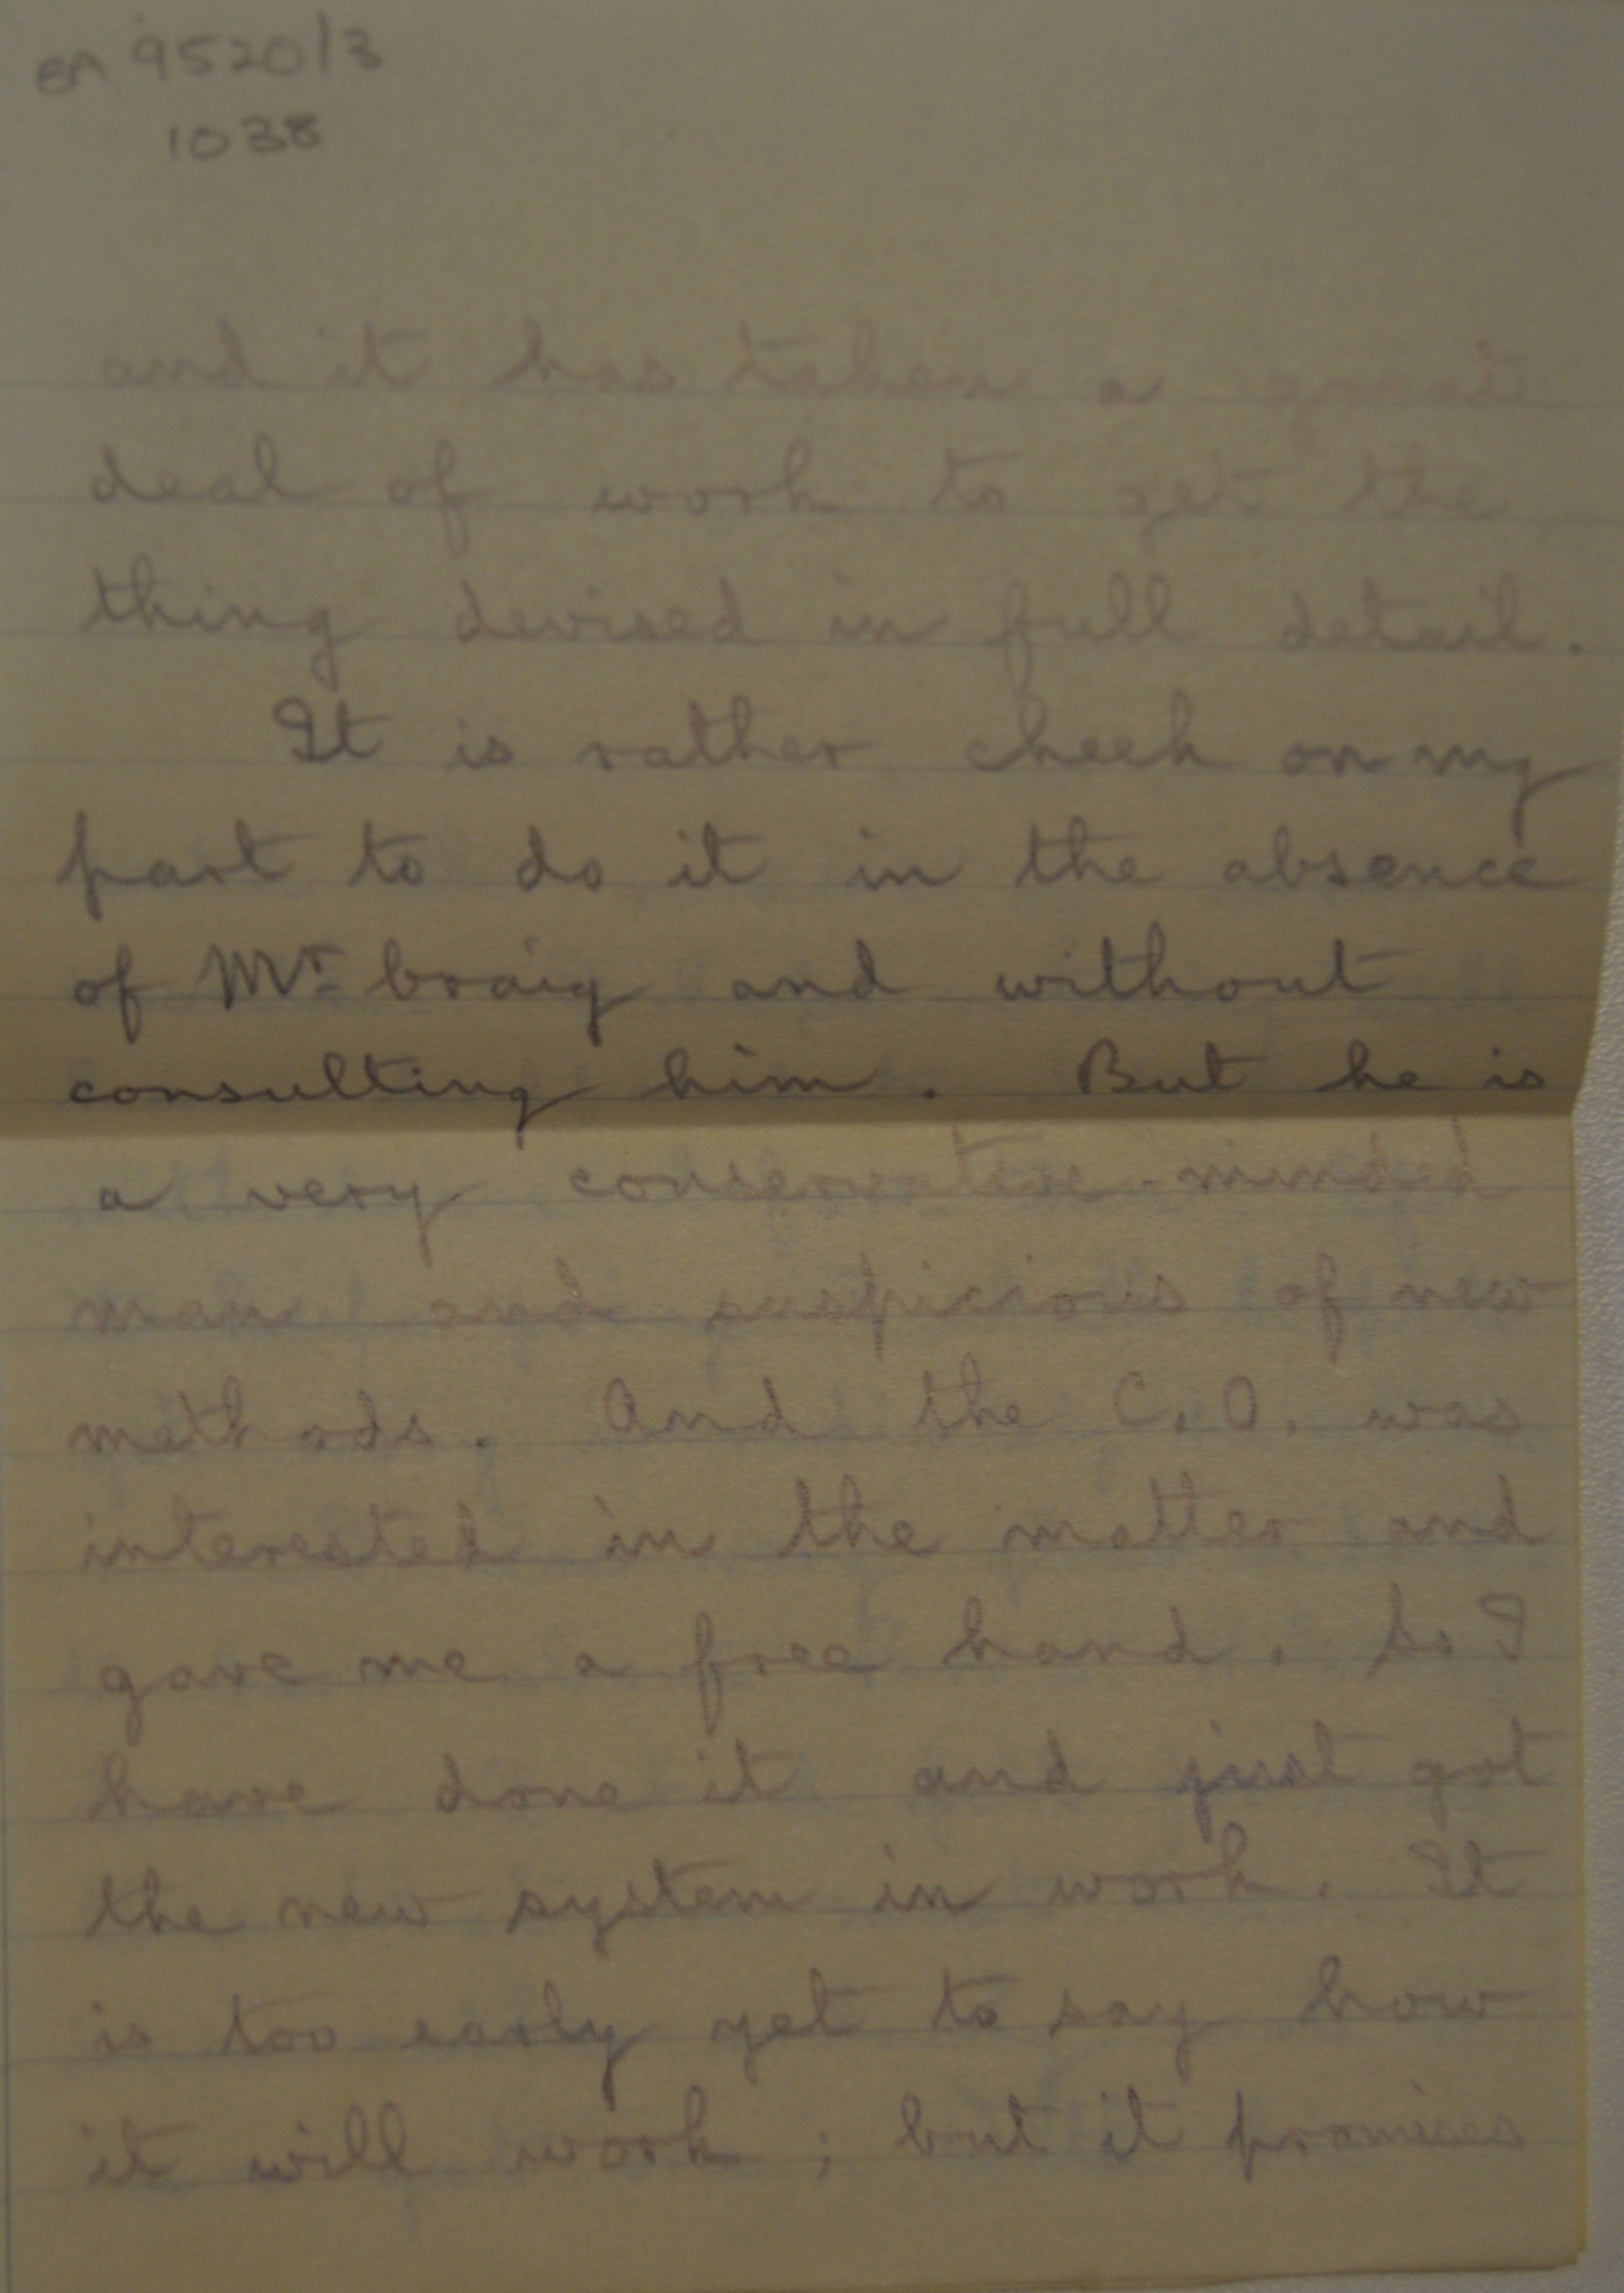 BA 9520/3
1038
and it has taken a great
deal of work to get the
thing devised in full detail.
It is rather cheek on my
part to do it in the absence
of Mr Craig and without
consulting him. But he is
a very conservative-minded
man and suspicious of new
methods. And the C.O. was
interested in the matter and
gave me a free hand. So I
have done it and just got
the new system in work. It
is too early yet to say how
it will work; but it promises